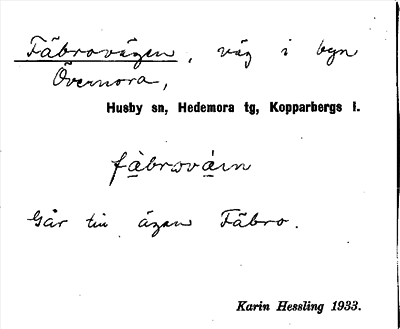 Fäbrovägen, väg i byn
Övernora,
Husby sn, Hedemora tg, Kopparbergs l.
fä̀brωvä́ιn
Går till ägan Fäbro.
Karin Hessling 1933.